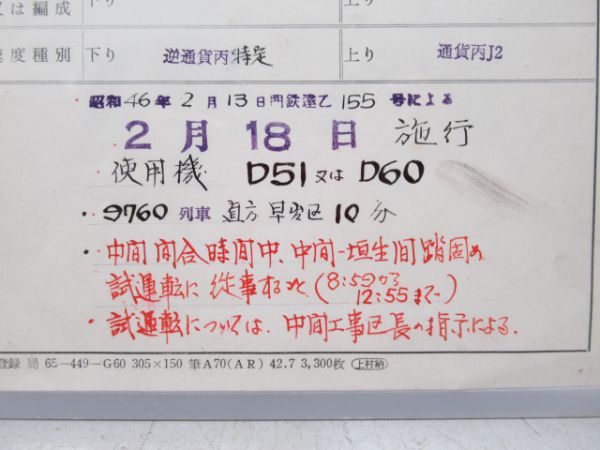 又は編成 下り 上り
速度種別 下り 逆通貨丙特定 上り 通貨丙J2
昭和46年2月13日門鉄達乙155号による
2月18日 施行
使用機 D51又はD60
・9760列車 直方早発区10分
・中間間合時間中、中間-垣生間踏固め
試運転に従事する丈(8:59から
12:55まで)
・試運転については、中間工事区長の指示による.
登録 局 65-449-G60 305×150 筆A70(AR) 42.7 3,300枚 上村納